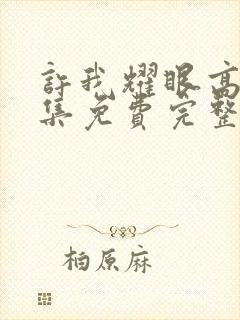 许我耀眼高
集免费完整
柏原麻